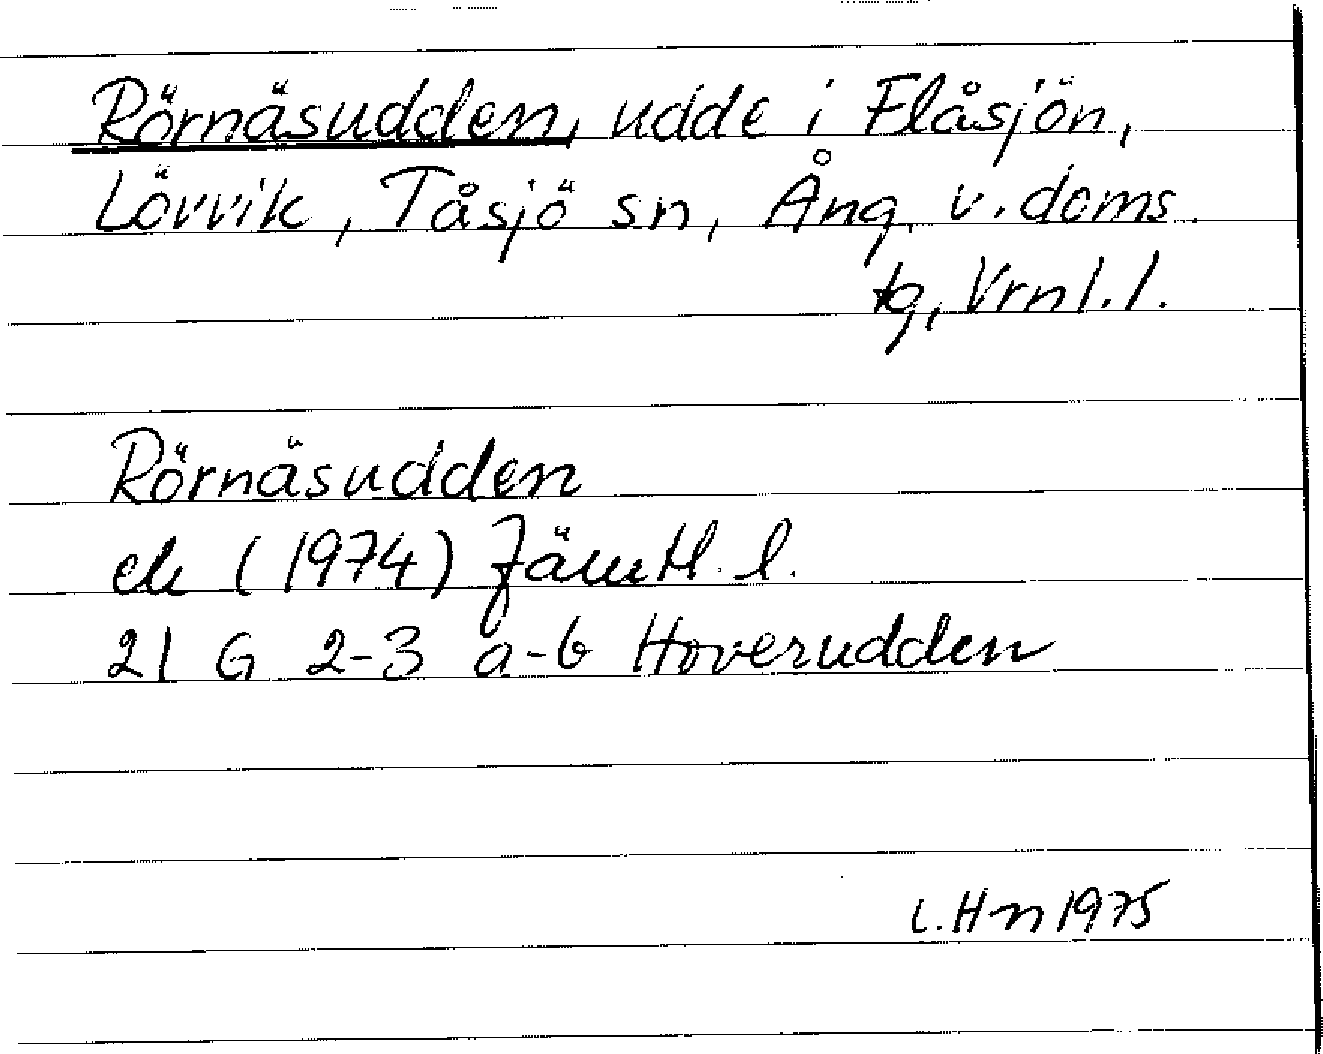 Rörnäsudden, udde i Flåsjön,
Lövvik, Tåsjö sn, Ång. v. doms.
tg, Vrnl. l.
Rörnäsudden
ek (1974) Jämtl. l.
21 G 2-3 a-b Hoverudden
L. Hn 1975